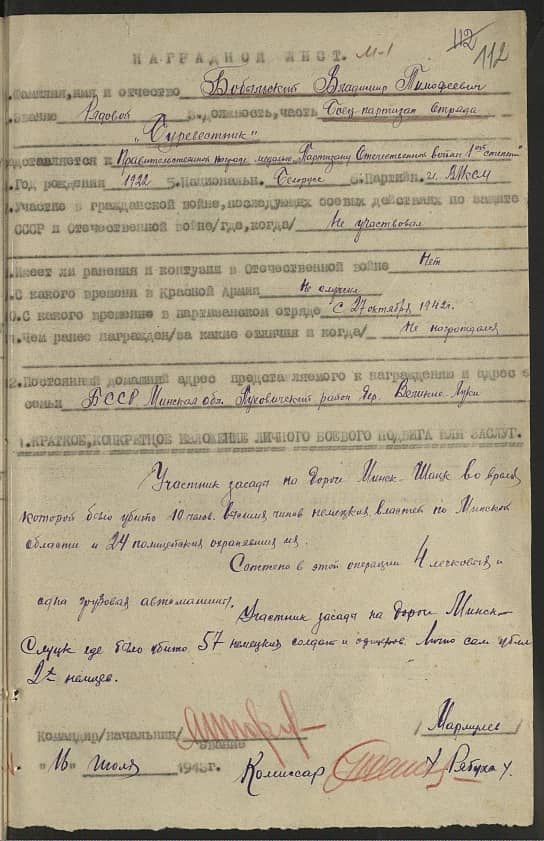 112
112
НАГРАДНОЙ ЛИСТ. М-1
1.Фамилия,имя и отчество Бобыльский Владимир Тимофеевич
2.Звание Рядовой 3.Должность,часть Боец-партизан отряда
"Буревестник"
Представляется к Правительственной награде медалью "Партизану Отечественной войны" 1ой степени
4.Год рождения 1922 5.Национальн. Белорус 6.Партийн. чл. ВЛКСМ
7.Участие в гражданской войне,последующих боевых действиях по защите
СССР и Отечественной войне/где,когда/ Не участвовал
8.Имеет ли ранения и контузия в Отечественной войне Нет
9.С какого времени в Красной Армии Не служил
10.С какого времение в партизанском отряде С 27 октября 1942г.
11.Чем ранее награжден/за какие отличия и когда/ Не награждался
12.Постоянный домашний адрес представляемого к награждению и адрес его
семьи БССР Минская обл. Пуховичский район дер. Великие Луки
1.КРАТКОЕ,КОНКРЕТНОЕ ИЗЛОЖЕНИЕ ЛИЧНОГО БОЕВОГО ПОДВИГА ИЛИ ЗАСЛУГ.
Участник засады на дороге Минск-Шацк во время
которой было убито 10 челов. высших чинов немецких властей по Минской
области и 24 полицейских охранявших их.
Сожжено в этой операции 4 легковых и
одна грузовая автомашины.
Участник засады на дороге Минск-
Слуцк где было убито 57 немецких солдат и офицеров. Лично сам убил
2х немцев.
Командир/начальник/
звание
"16" июля 1943г.
Комиссар / Рябуха /